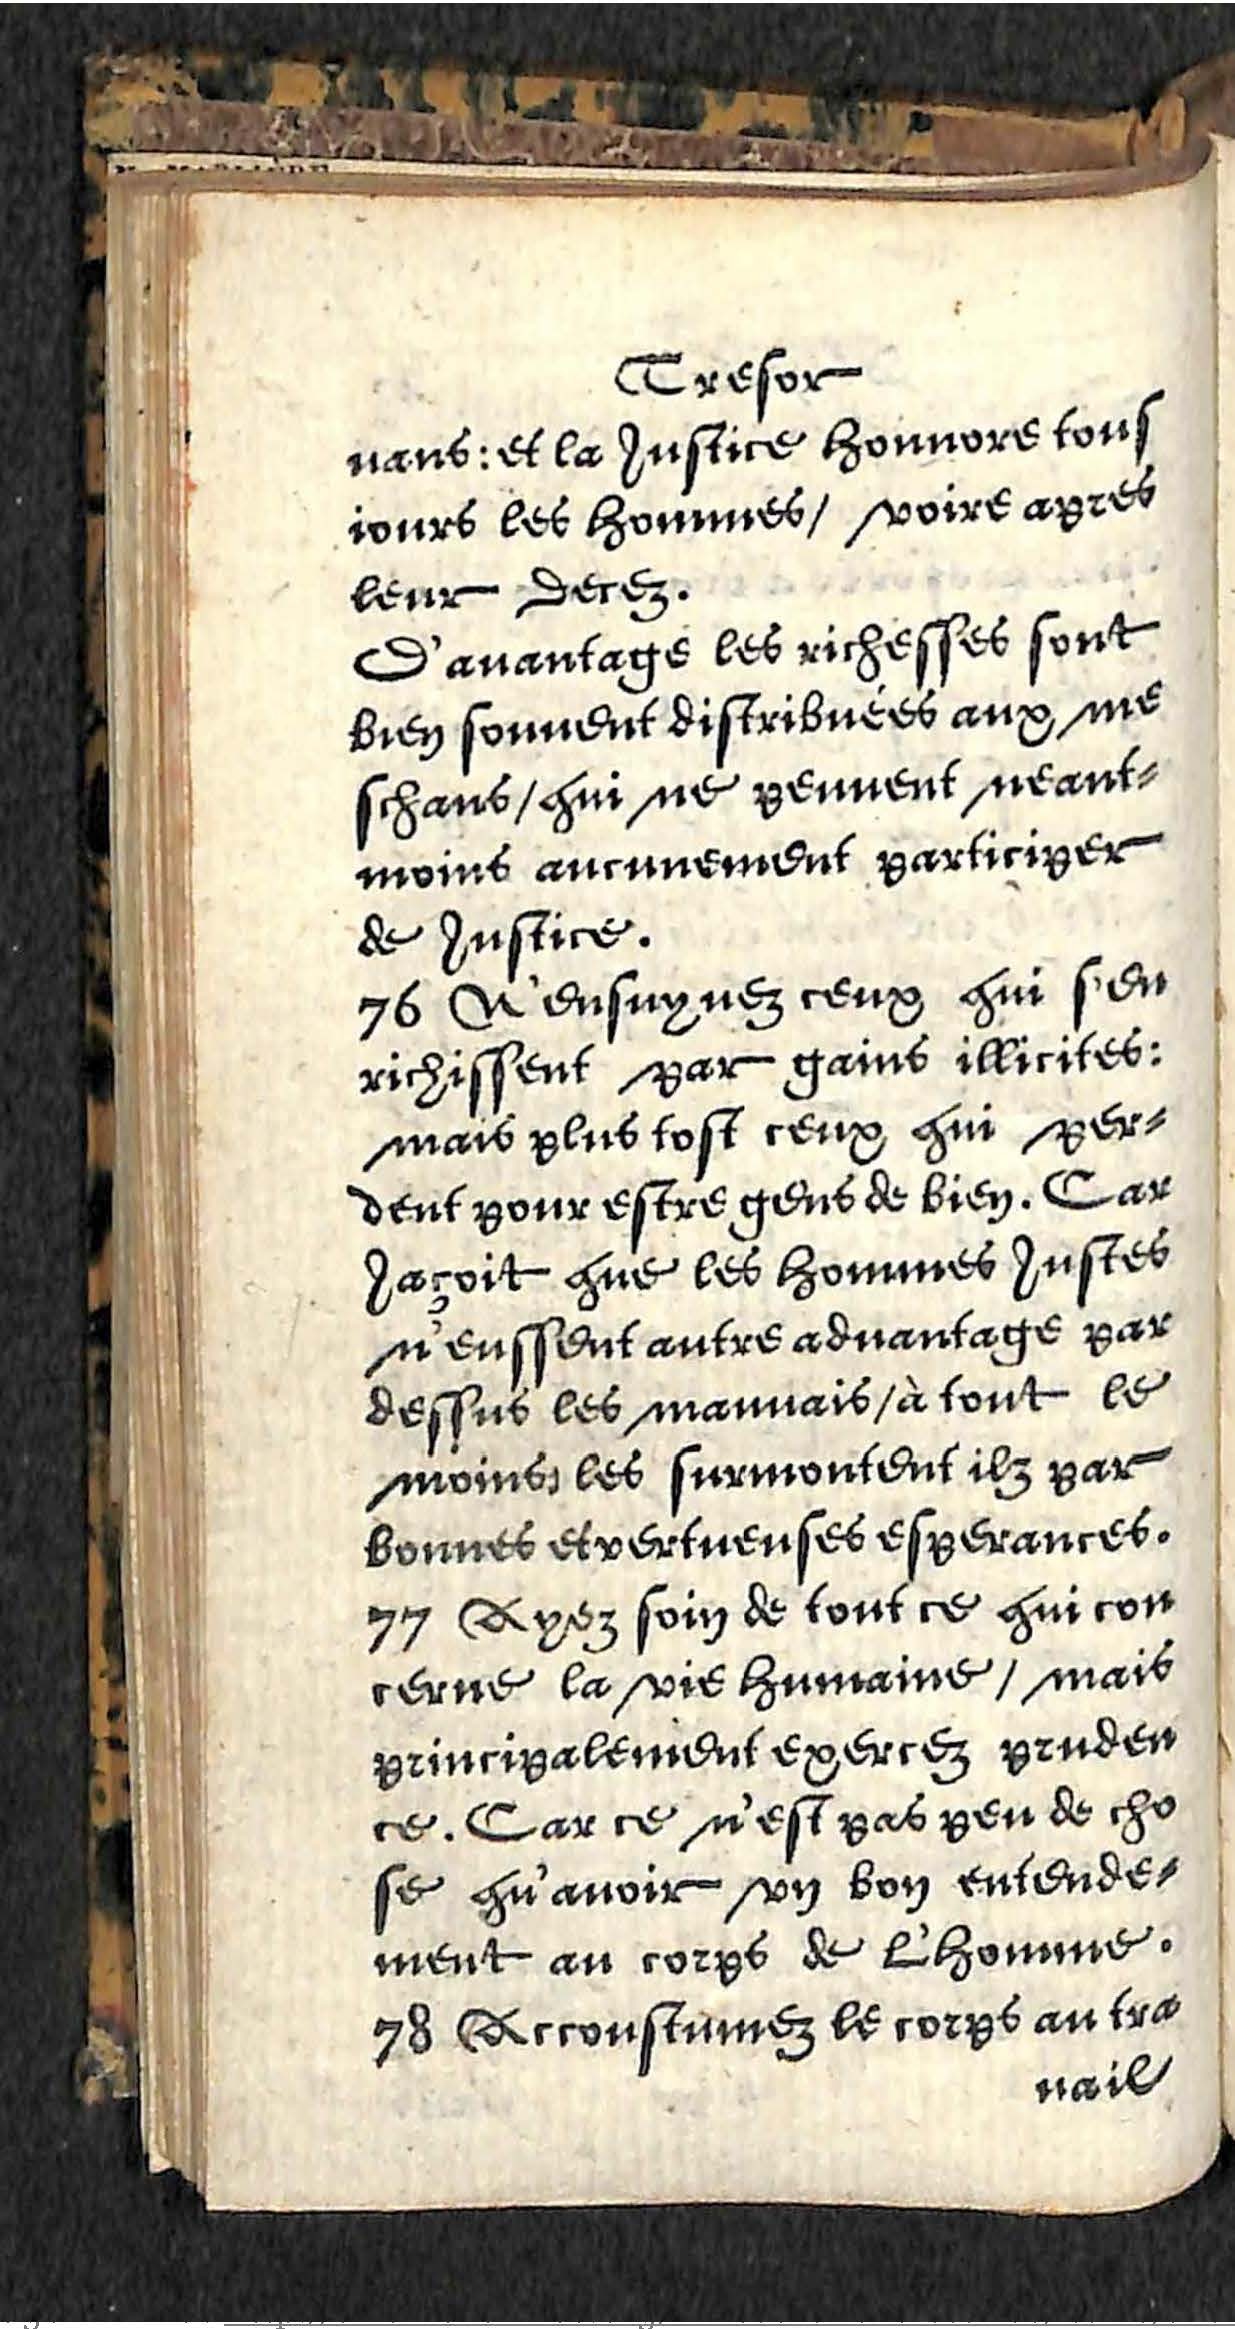 Tresor
nans: et la Justice honnore tous
iours les hommes/ voire apres
leur decez.
D'auantage les richesses sont
bien souuent distribuées aux me
schans/ qui ne peuuent neant-
moins aucunement participer
de Justice.
76 N'ensuyuez ceux qui s'en
richissent par gains illicites:
mais plus tost ceux qui per-
dent pour estre gens de bien. Car
Jaçoit que les hommes Justes
n'eussent autre aduantage par
dessus les mauuais/ à tout le
moins les surmontent ilz par
bonnes et vertueuses esperances.
77 Ayez soin de tout ce qui con
cerne la vie humaine/ mais
principalement exercez pruden
ce. Car ce n'est pas peu de cho
se qu'auoir vn bon entende-
ment au corps de l'homme.
78 Accoustumez le corps au tra
uail